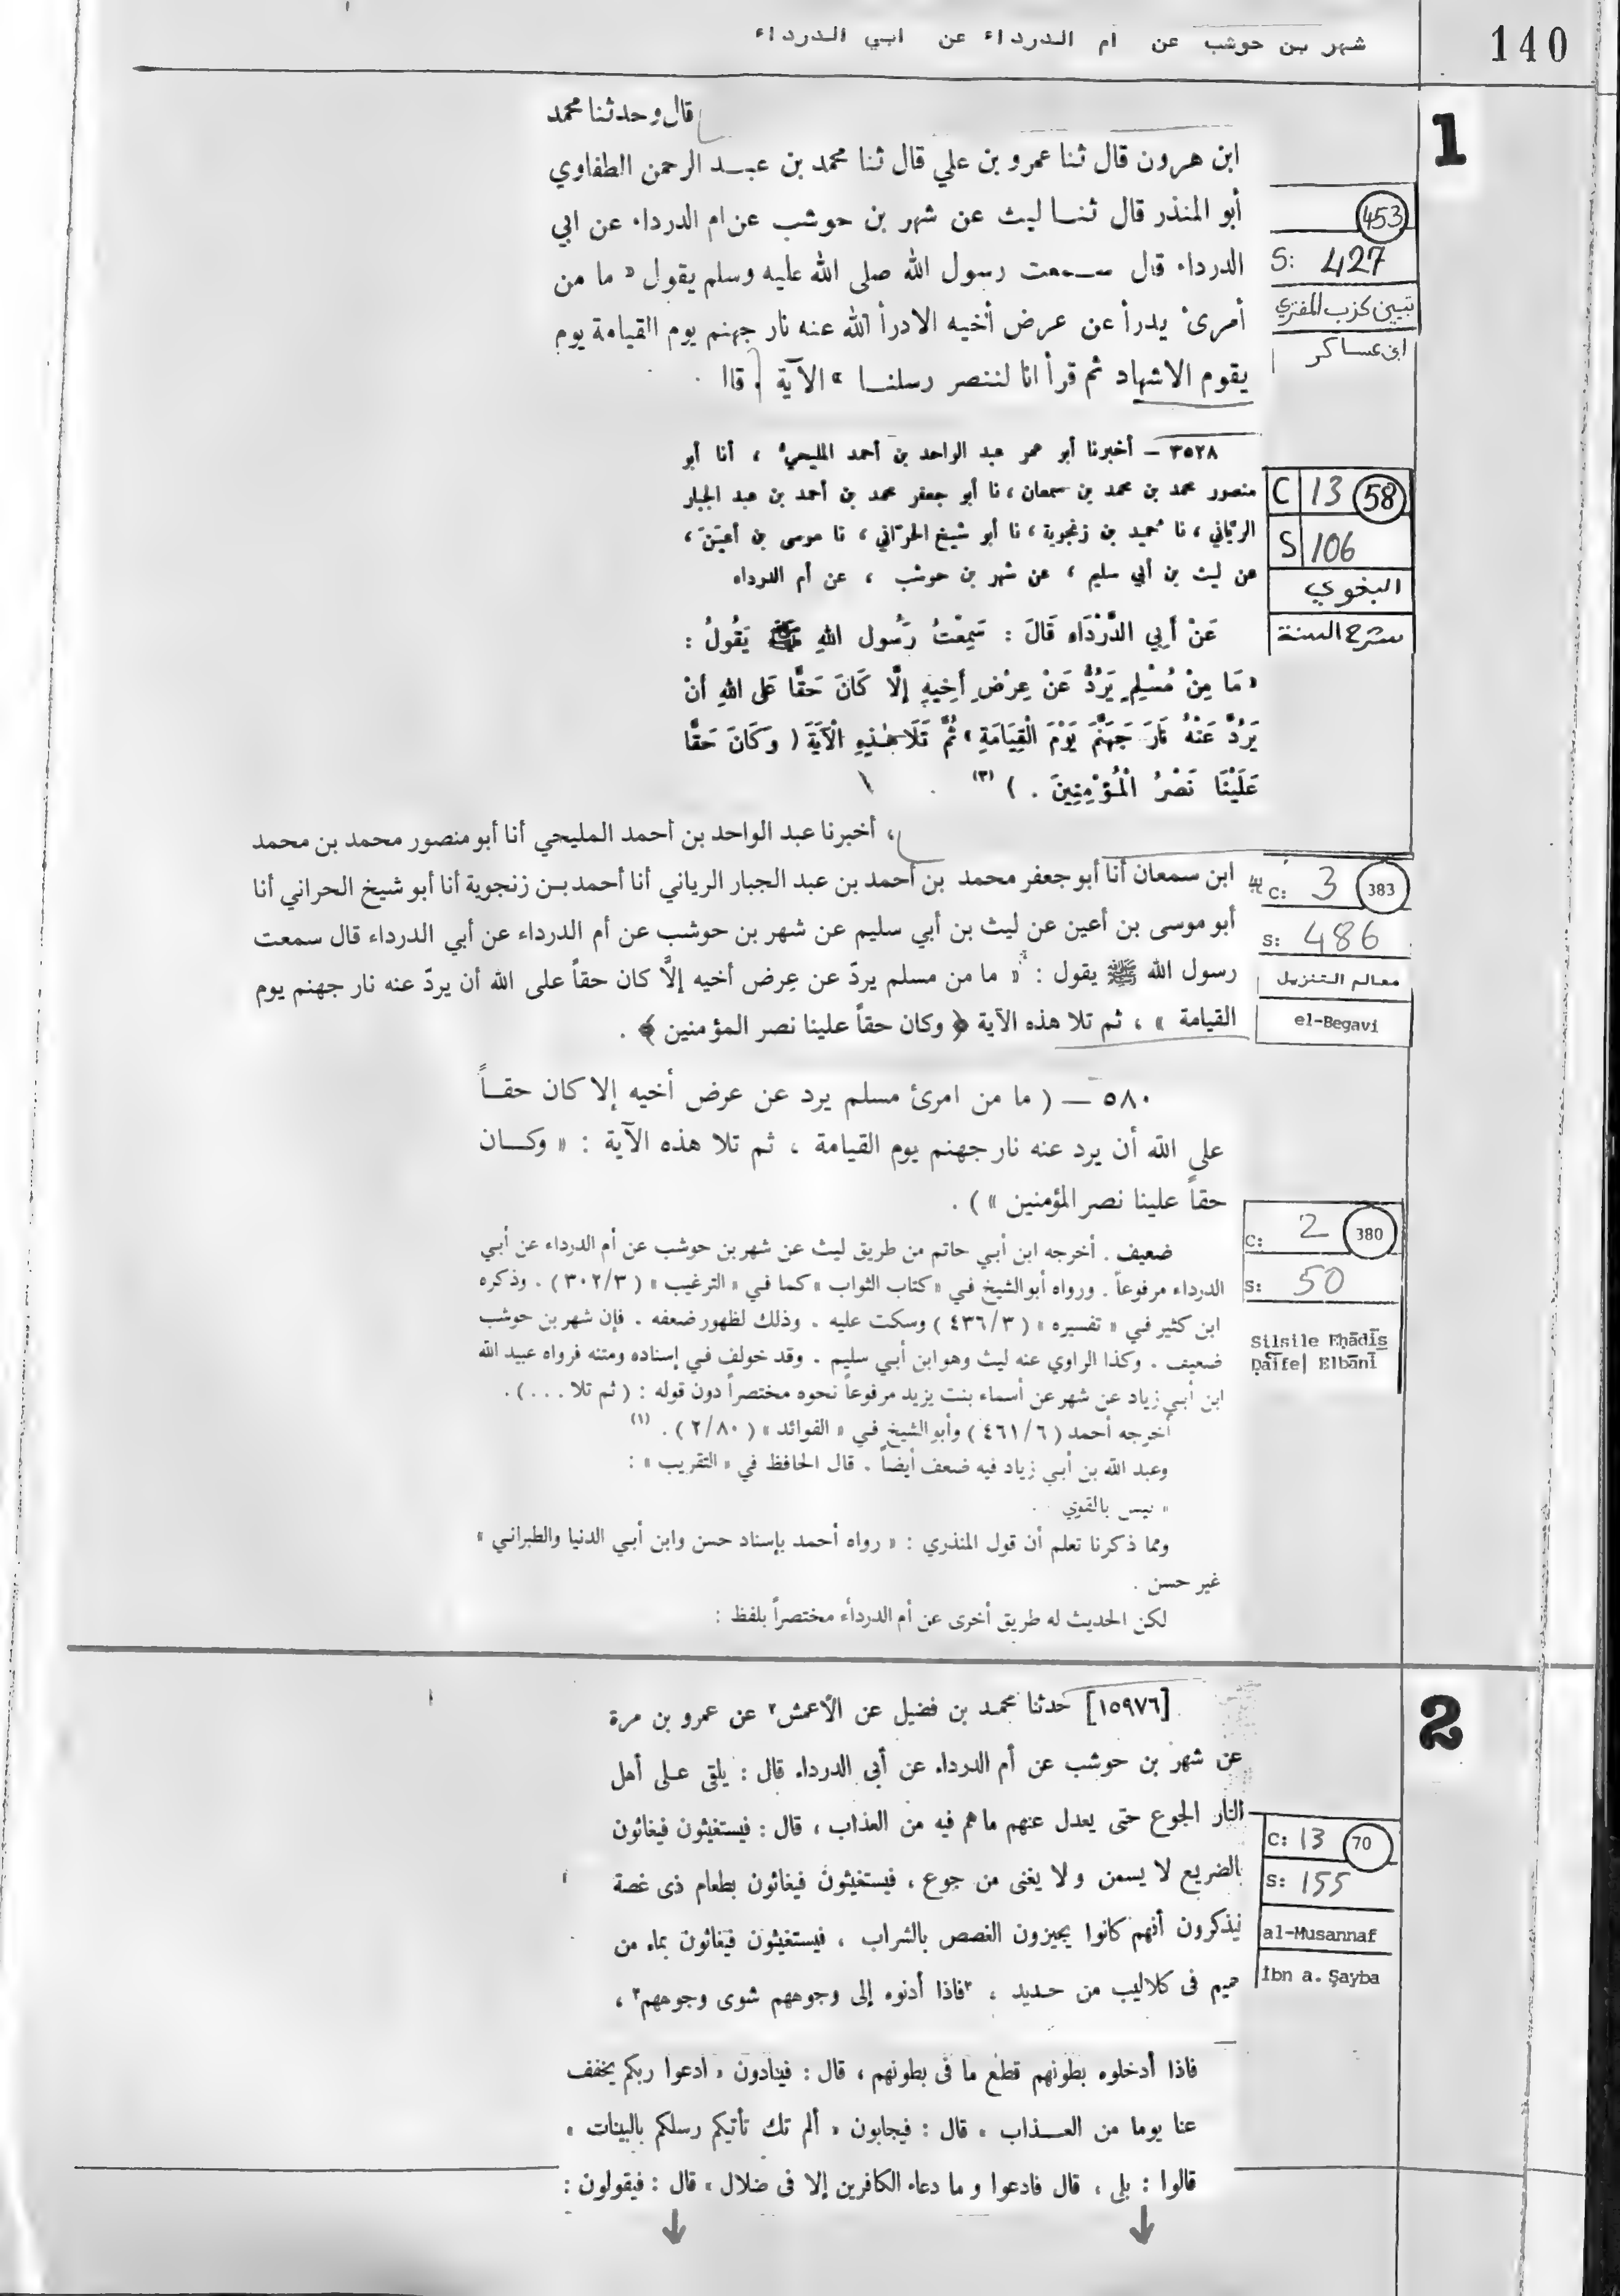 140
شهر بن حوشب عن ام الدرداء عن ابي الدرداء
1
قال وحدثنا محمد
ابن هرون قال ثنا عمرو بن علي قال ثنا محمد بن عبد الرحمن الطفاوي
أبو المنذر قال ثنا ليث عن شهر بن حوشب عن ام الدرداء عن ابي
الدرداء قال سمعت رسول الله صلى الله عليه وسلم يقول « ما من
أمرئ يدرأ عن عرض أخيه الا درأ الله عنه نار جهنم يوم القيامة يوم
يقوم الاشهاد ثم قرأ انا لننصر رسلنا » الآية
453
S: 427
تبيين كزب المفتري
ابن عساكر
٣٥٢٨ – أخبرنا أبو عمر عبد الواحد بن أحمد المليحي ، أنا أبو
منصور محمد بن محمد بن سمعان ، نا أبو جعفر محمد بن أحمد بن عبد الجبار
الرياني ، نا حميد بن زنجوية ، نا أبو شيخ الحراني ، نا موسى بن أعين ،
عن ليث بن أبي سليم ، عن شهر بن حوشب ، عن أم الدرداء
عَنْ أَبِي الدَّرْدَاءِ قَالَ : سَمِعْتُ رَسُولَ اللهِ ﷺ يَقُولُ :
« مَا مِنْ مُسْلِمٍ يَرُدُّ عَنْ عِرْضِ أَخِيهِ إِلَّا كَانَ حَقًّا عَلَى اللهِ أَنْ
يَرُدَّ عَنْهُ نَارَ جَهَنَّمَ يَوْمَ الْقِيَامَةِ » ثُمَّ تَلَا هٰذِهِ الْآيَةَ ( وَكَانَ حَقًّا
عَلَيْنَا نَصْرُ الْمُؤْمِنِينَ . ) (٣)
C 13 58
S 106
البغوي
شرح السنة
، أخبرنا عبد الواحد بن أحمد المليحي أنا أبو منصور محمد بن محمد
ابن سمعان أنا أبو جعفر محمد بن أحمد بن عبد الجبار الرياني أنا أحمد بن زنجوية أنا أبو شيخ الحراني أنا
أبو موسى بن أعين عن ليث بن أبي سليم عن شهر بن حوشب عن أم الدرداء عن أبي الدرداء قال سمعت
رسول الله ﷺ يقول : « ما من مسلم يردّ عن عِرض أخيه إلَّا كان حقاً على الله أن يردّ عنه نار جهنم يوم
القيامة » ، ثم تلا هذه الآية ﴿ وكان حقاً علينا نصر المؤمنين ﴾ .
C: 3 383
S: 486
معالم التنزيل
el-Begavi
٥٨٠ — ( ما من امرئ مسلم يرد عن عرض أخيه إلا كان حقــاً
على الله أن يرد عنه نار جهنم يوم القيامة ، ثم تلا هذه الآية : « وكــان
حقاً علينا نصر المؤمنين » ) .
ضعيف . أخرجه ابن أبي حاتم من طريق ليث عن شهر بن حوشب عن أم الدرداء عن أبي
الدرداء مرفوعاً . ورواه أبو الشيخ في « كتاب الثواب » كما في « الترغيب » ( ٣٠٢/٣ ) . وذكره
ابن كثير في « تفسيره » ( ٤٣٦/٣ ) وسكت عليه . وذلك لظهور ضعفه . فإن شهر بن حوشب
ضعيف . وكذا الراوي عنه ليث وهو ابن أبي سليم . وقد خولف في إسناده ومتنه فرواه عبيد الله
ابن أبي زياد عن شهر عن أسماء بنت يزيد مرفوعاً نحوه مختصراً دون قوله : ( ثم تلا . . . ) .
أخرجه أحمد ( ٤٦١/٦ ) وأبو الشيخ في « الفوائد » ( ٢/٨٠ ) . (١)
وعبد الله بن أبي زياد فيه ضعف أيضاً . قال الحافظ في « التقريب » :
« ليس بالقوي
ومما ذكرنا تعلم أن قول المنذري : « رواه أحمد بإسناد حسن وابن أبي الدنيا والطبراني »
غير حسن .
لكن الحديث له طريق أخرى عن أم الدرداء مختصراً بلفظ :
C: 2 380
S: 50
Silsile Eḥādīs
Ḍaīfe| Elbānī
2
[١٥٩٧٦] حدثنا محمد بن فضيل عن الأعمش٢ عن عمرو بن مرة
عن شهر بن حوشب عن أم الدرداء عن أبى الدرداء قال : يلقى على أهل
النار الجوع حتى يعدل عنهم ما هم فيه من العذاب ، قال : فيستغيثون فيغاثون
بالضريع لا يسمن ولا يغنى من جوع ، فيستغيثون فيغاثون بطعام ذى غصة
فيذكرون أنهم كانوا يجيزون الغصص بالشراب ، فيستغيثون فيغاثون بماء من
حميم فى كلاليب من حديد ، ٣فاذا أدنوه إلى وجوههم شوى وجوههم٣ ،
فاذا أدخلوه بطونهم قطع ما فى بطونهم ، قال : فينادون « ادعوا ربكم يخفف
عنا يوما من العــذاب » قال : فيجابون « ألم تك تأتيكم رسلكم بالبينات »
قالوا : بلى ، قال فادعوا و ما دعاء الكافرين إلا فى ضلال » قال : فيقولون :
C: 13 70
S: 155
al-Musannaf
İbn a. Şayba